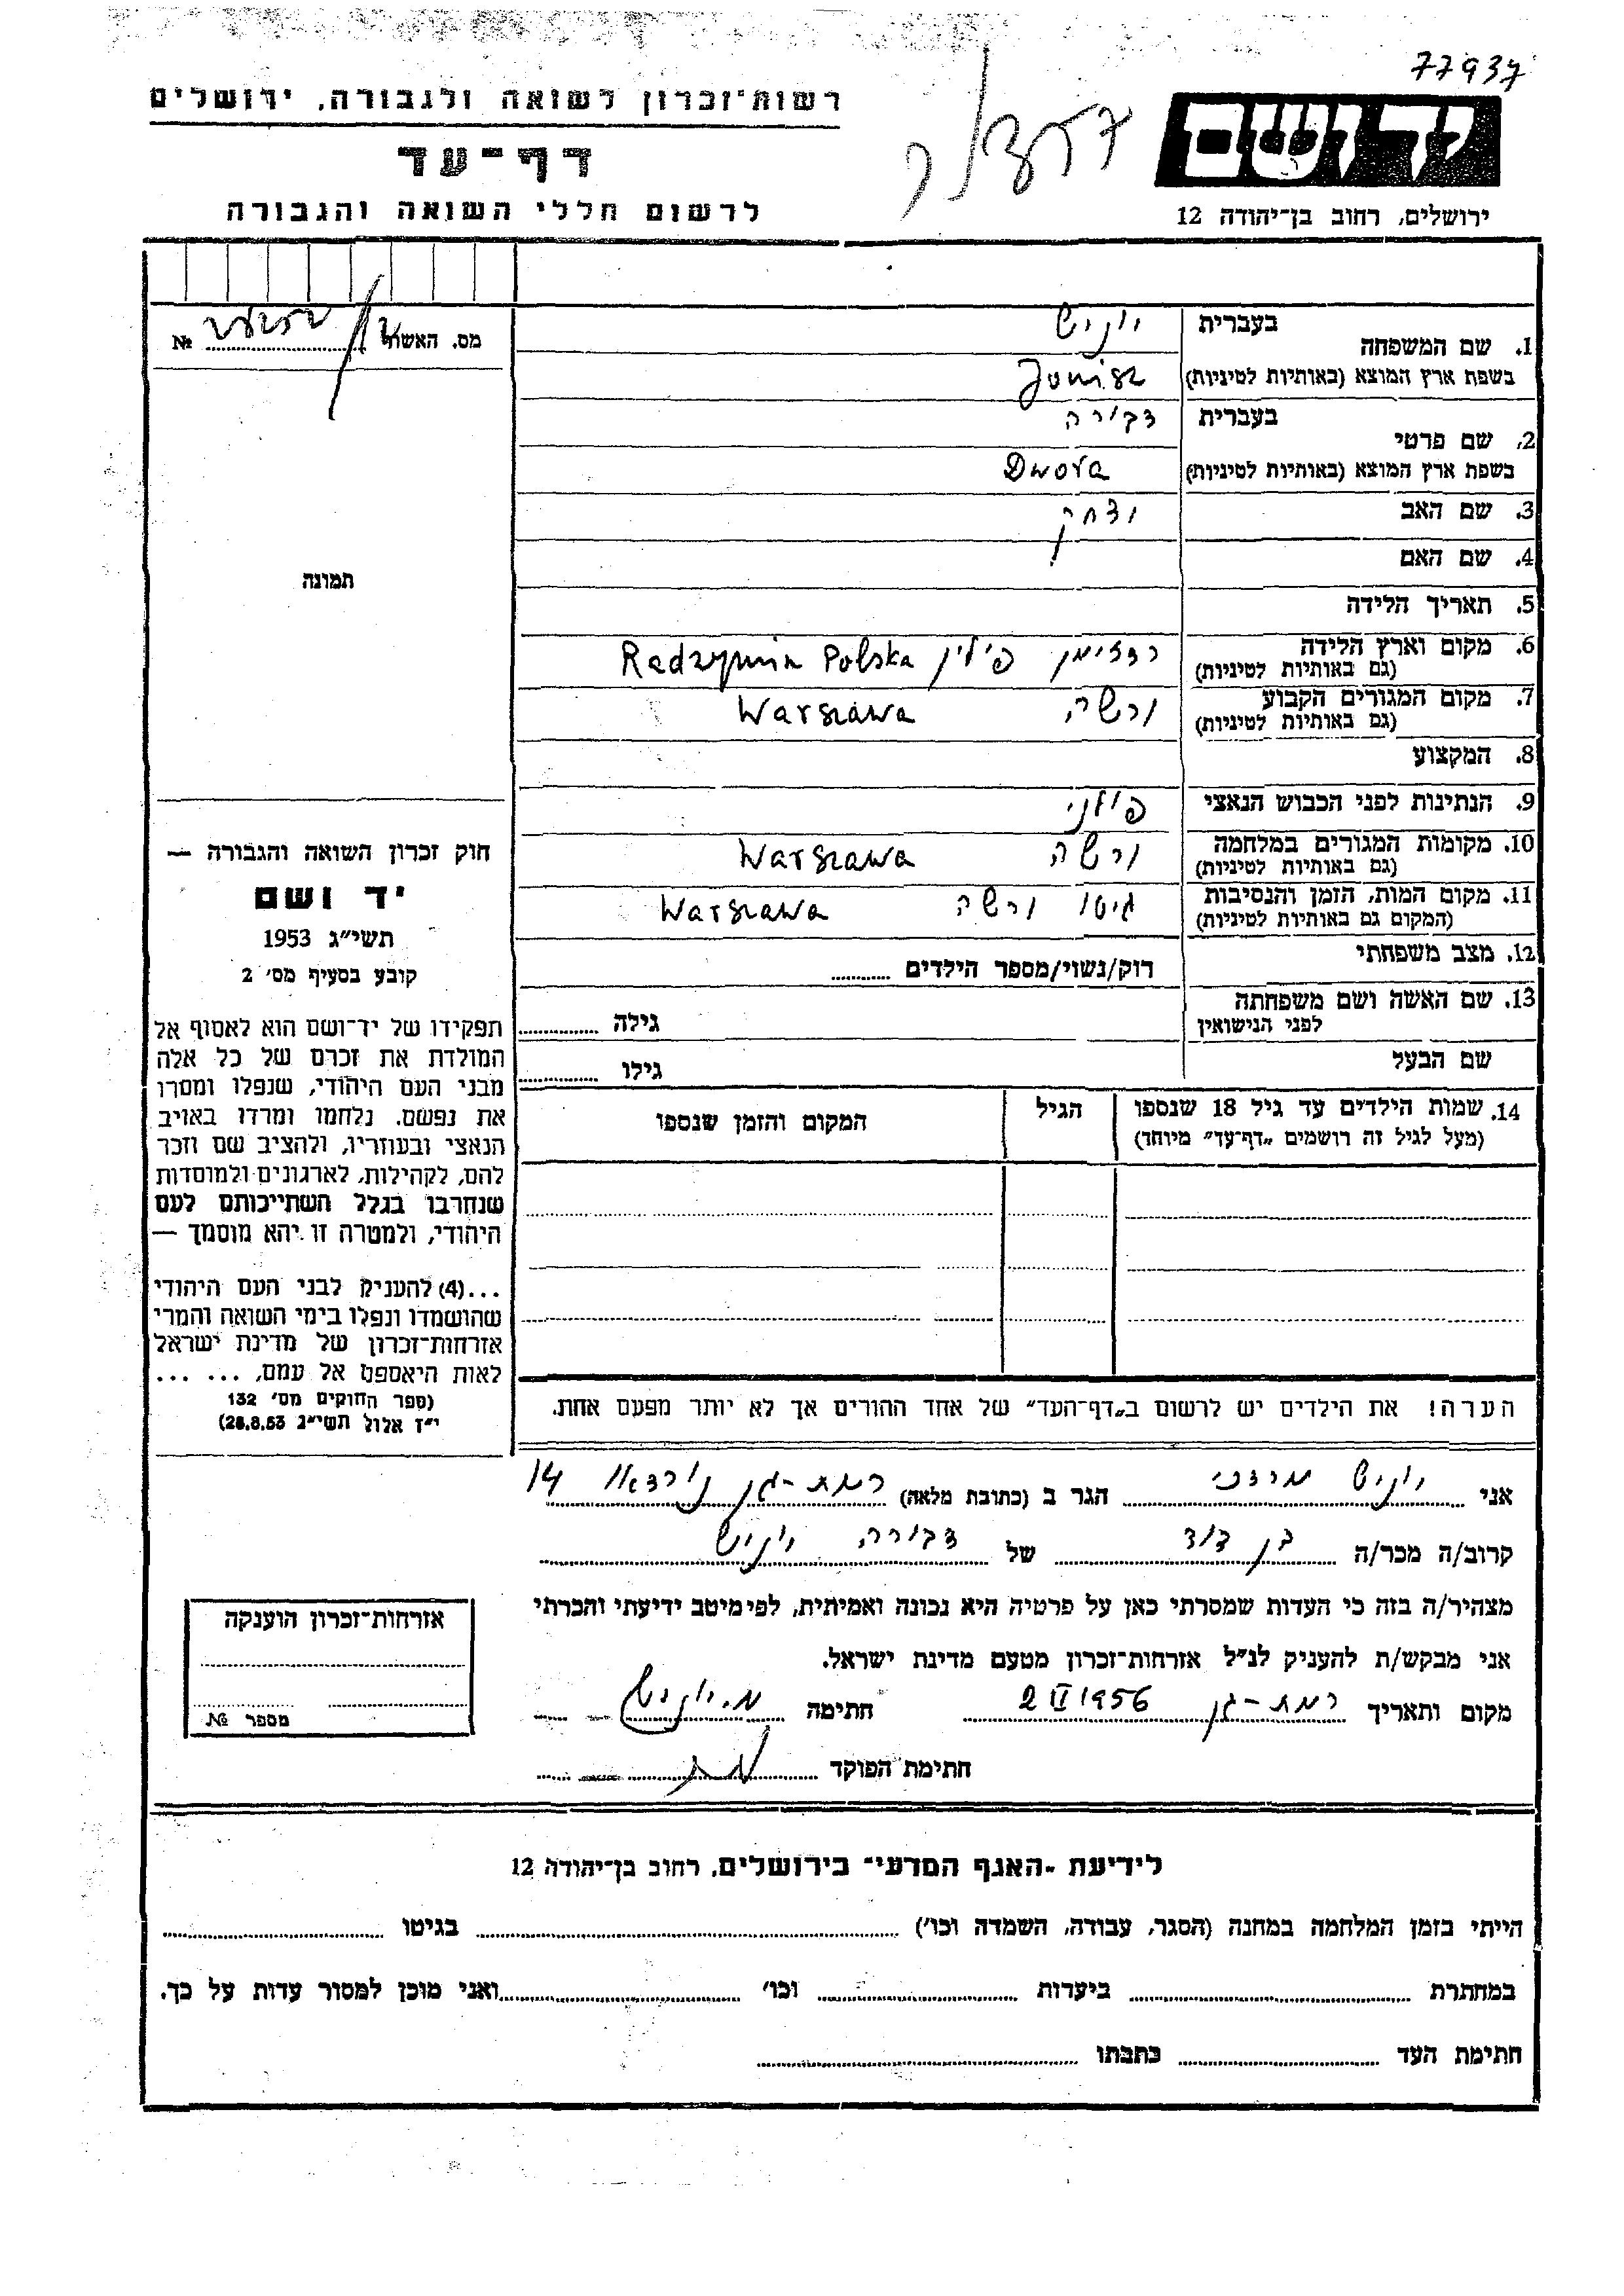 77937
רשות־זכרון לשואה ולגבורה, ירושלים
דף־עד
לרשום חללי השואה והגבורה
יד ושם
ירושלים, רחוב בן־יהודה 12
מס. האשה № 
1. שם המשפחה בעברית יוניש
בשפת ארץ המוצא (באותיות לטיניות) Junisz
2. שם פרטי בעברית דבורה
בשפת ארץ המוצא (באותיות לטיניות) Dwora
3. שם האב יצחק
4. שם האם
5. תאריך הלידה
6. מקום וארץ הלידה (גם באותיות לטיניות) רדזימין פולין Radzymin Polska
7. מקום המגורים הקבוע (גם באותיות לטיניות) ורשה Warszawa
8. המקצוע
9. הנתינות לפני הכבוש הנאצי פולני
10. מקומות המגורים במלחמה (גם באותיות לטיניות) ורשה Warszawa
11. מקום המות, הזמן והנסיבות (המקום גם באותיות לטיניות) גיטו ורשה Warszawa
12. מצב משפחתי רוק/נשוי/מספר הילדים
13. שם האשה ושם משפחתה לפני הנישואין גילה
שם הבעל גילו
תמונה
חוק זכרון השואה והגבורה —
יד ושם
תשי״ג 1953
קובע בסעיף מס׳ 2
תפקידו של יד־ושם הוא לאסוף אל
המולדת את זכרם של כל אלה
מבני העם היהודי, שנפלו ומסרו
את נפשם, נלחמו ומרדו באויב
הנאצי ובעוזריו, ולהציב שם וזכר
להם, לקהילות, לארגונים ולמוסדות
שנחרבו בגלל השתייכותם לעם
היהודי, ולמטרה זו יהא מוסמך —
...(4) להעניק לבני העם היהודי
שהושמדו ונפלו בימי השואה והמרי
אזרחות־זכרון של מדינת ישראל
לאות היאספם אל עמם, ... ...
(ספר החוקים מס׳ 132
י״ז אלול תשי״ג 28.8.53)
14. שמות הילדים עד גיל 18 שנספו הגיל המקום והזמן שנספו
(מעל לגיל זה רושמים „דף־עד״ מיוחד)
הערה! את הילדים יש לרשום ב„דף־העד״ של אחד ההורים אך לא יותר מפעם אחת.
אני יוניש מרדכי הגר ב (כתובת מלאה) רמת-גן נורדאו 14
קרוב/ה מכר/ה בן דוד של דבורה יוניש
מצהיר/ה בזה כי העדות שמסרתי כאן על פרטיה היא נכונה ואמיתית, לפי מיטב ידיעתי והכרתי
אני מבקש/ת להעניק לנ״ל אזרחות־זכרון מטעם מדינת ישראל.
מקום ותאריך רמת-גן 2 VI 1956 חתימה מ. יוניש
חתימת הפוקד
אזרחות־זכרון הוענקה
מספר №
לידיעת ״האגף המדעי״ בירושלים, רחוב בן־יהודה 12
הייתי בזמן המלחמה במחנה (הסגר, עבודה, השמדה וכו׳) בגיטו
במחתרת ביערות וכו׳ ואני מוכן למסור עדות על כך.
חתימת העד כתבתו